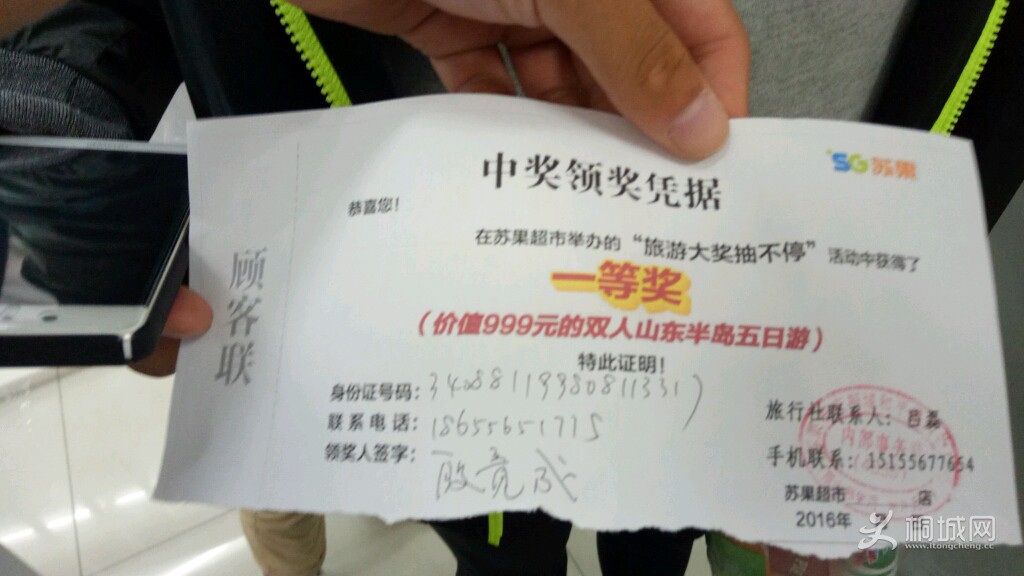 SG苏果
中奖领奖凭据
恭喜您！
在苏果超市举办的“旅游大奖抽不停”活动中获得了
一等奖
（价值999元的双人山东半岛五日游）
特此证明！
顾客联
身份证号码：
联系电话：18655651775
领奖人签字：殷竟成
旅行社联系人：吕磊
手机联系：15155677654
苏果超市 店
2016年
桐城网
www.itongcheng.cc